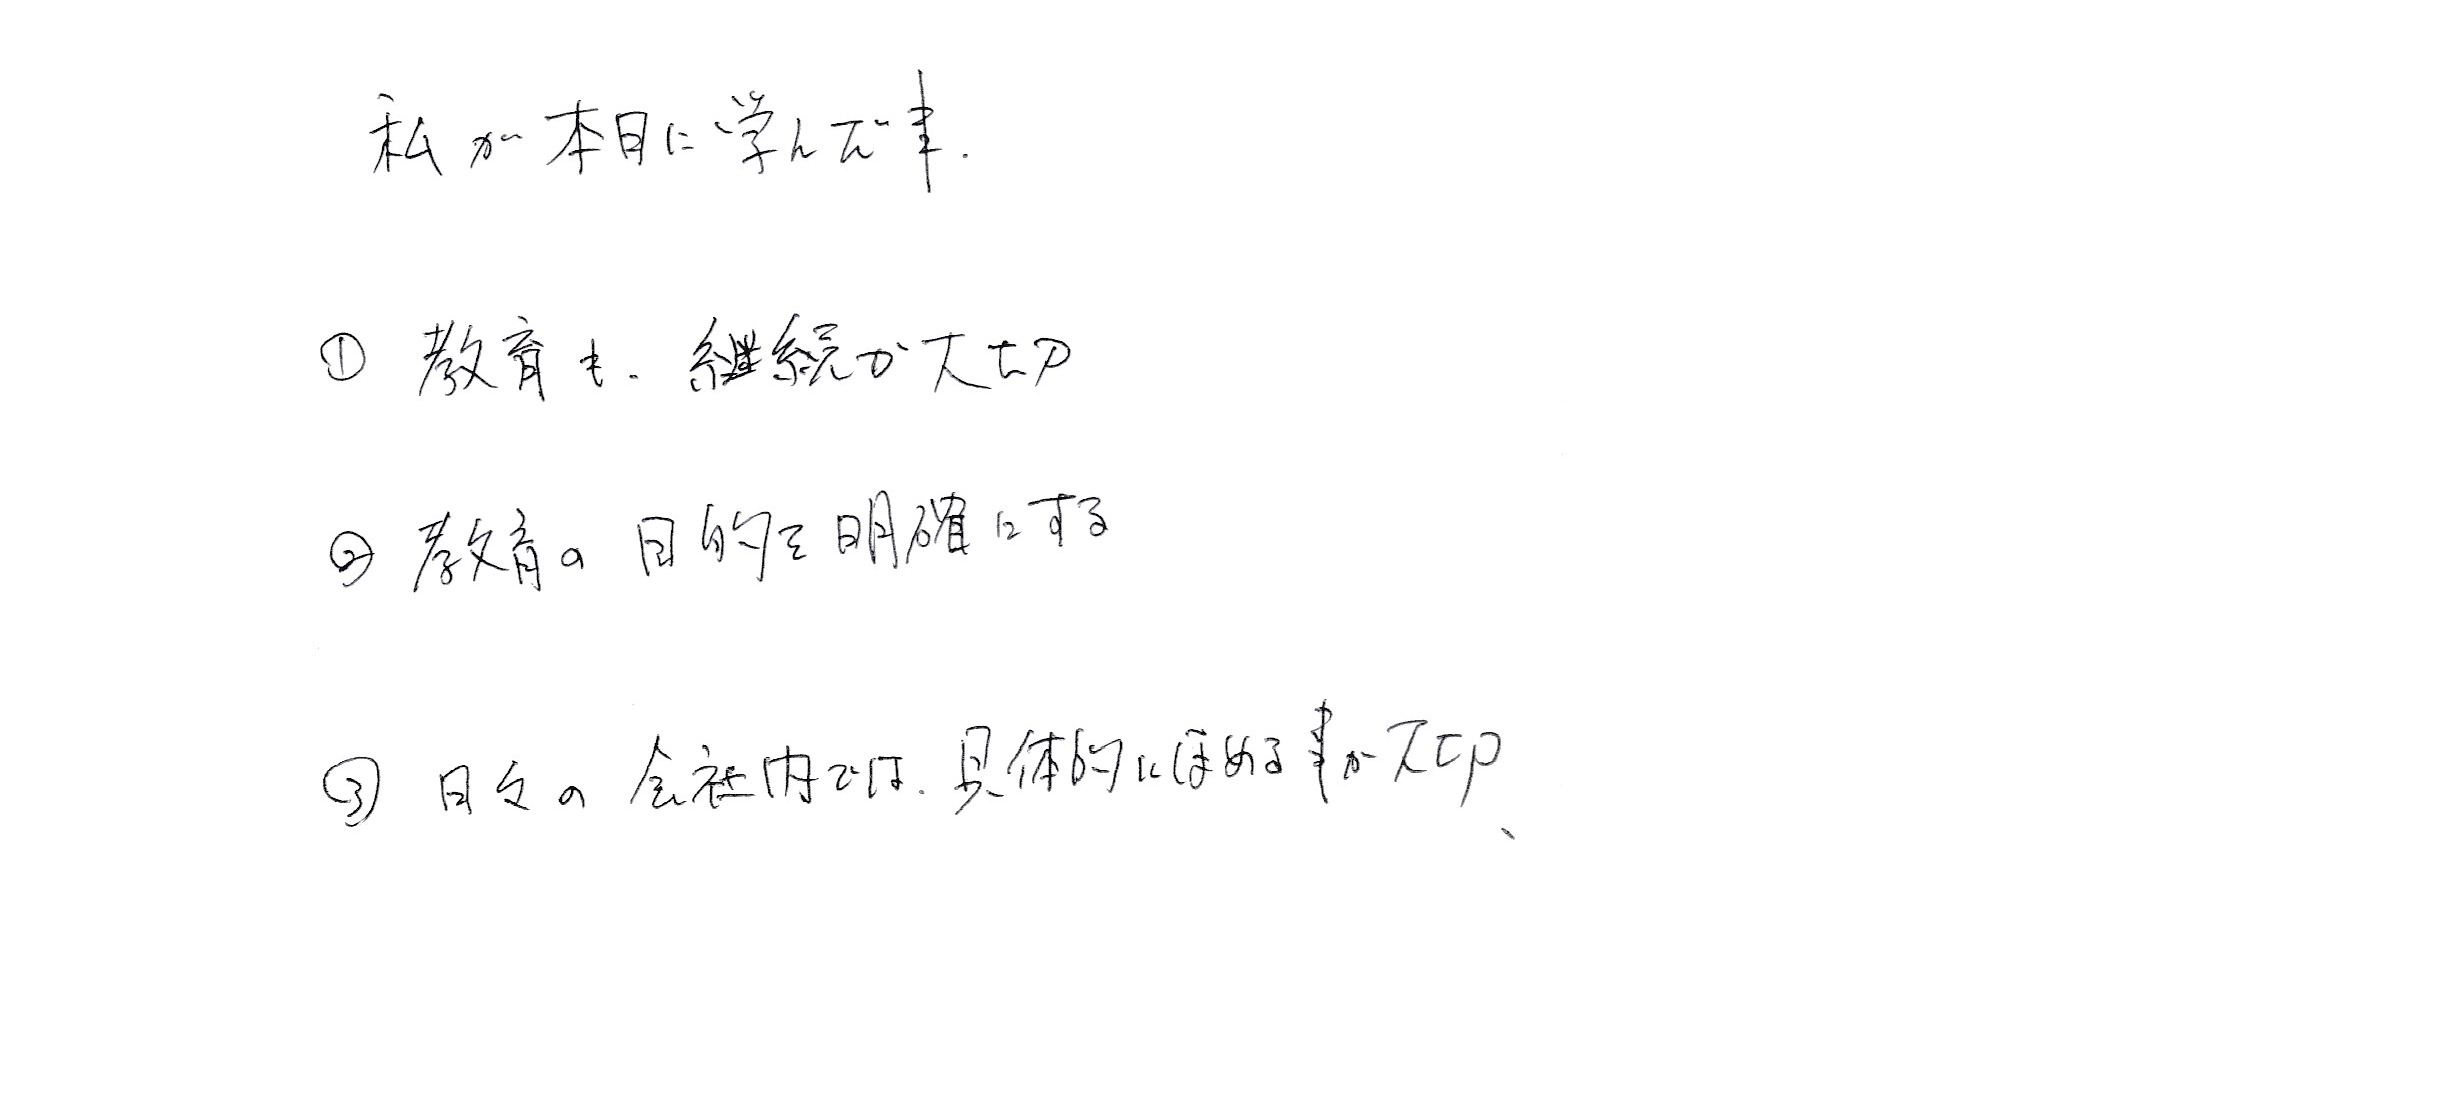 私が本日に学んだ事.
① 教育も.継続が大切
② 教育の目的を明確にする
③ 日々の会社内では.具体的にほめる事が大切、